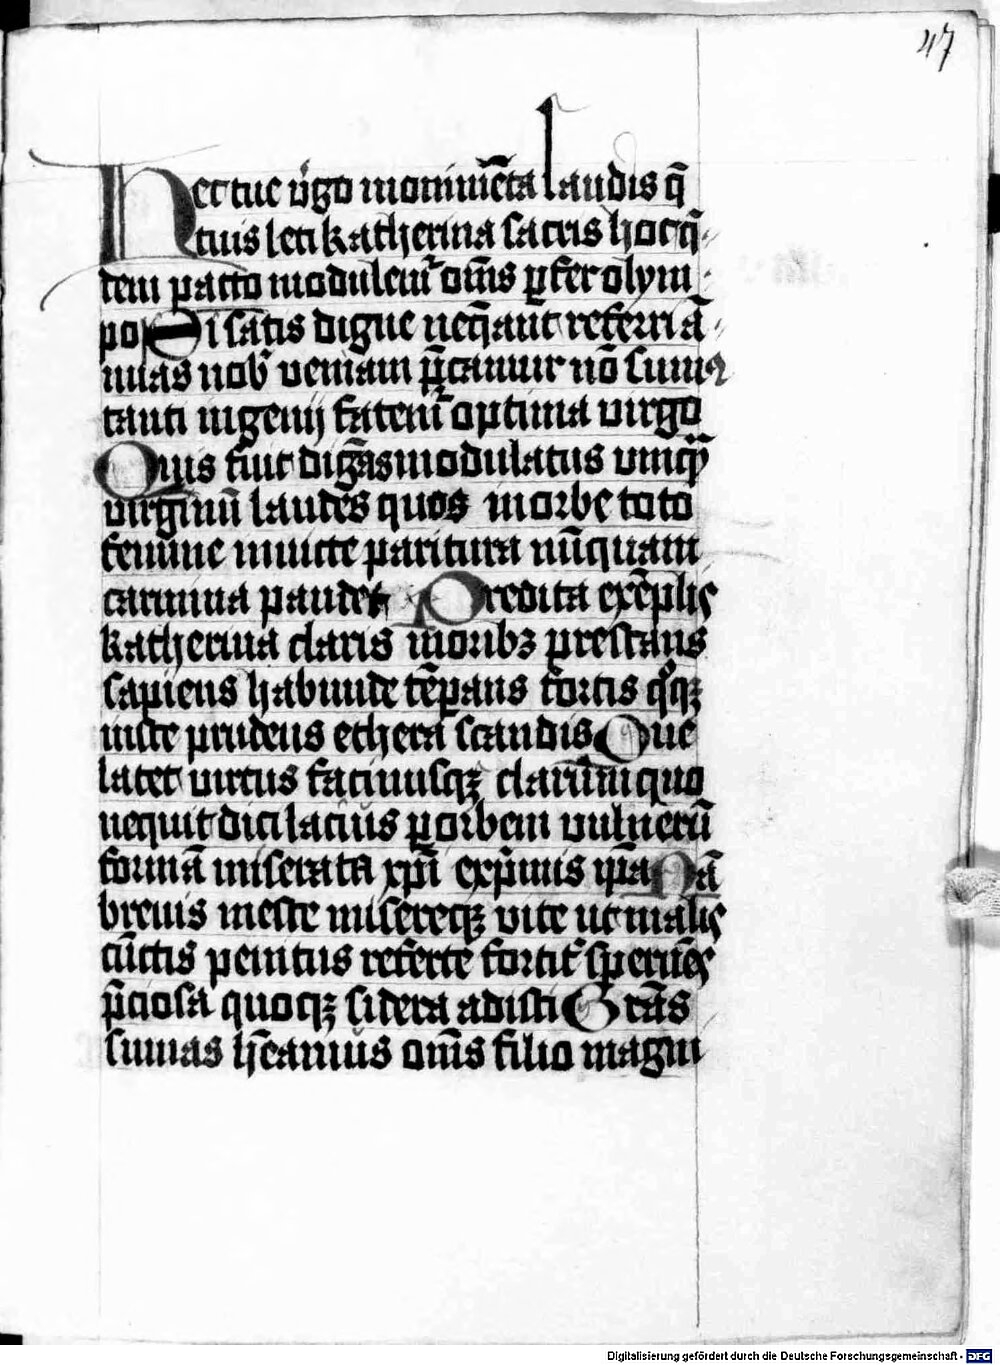 47
Hec tue v̓go monimēta laudis q̄
tuis leti katherina sacris hocq̄
dem pacto modulem̓ om̄s ꝑfer olym
po Si satis digne neq̄ant referri ā
nuas nob̓ veniam p̄camur nō sumꝰ
tanti ingenij fatem̓ optima virgo
Quis fuit dignꝰ modulatus vmq̄
virginū laudes quos in orbe toto
femine inuicte paritura nūquam
carmina pandet Predita exēplis
katherina claris moribꝫ prestans
sapiens habunde tēpans fortis qͦqꝫ
iuste prudens ethera scandis Que
latet virtus facinusqꝫ clarū in quo
nequit dici lacius ꝑ orbem vulnerū
formā miserata xp̄i exp̄mis ip̄a Nā
breuis meste misereqꝫ vite ut malis
cūctis penitus referte fortit̓ spernēs
p̄ciosa quoqꝫ sidera adisti Grās
summas h̓eamus om̄s filio magni
Digitalisierung gefördert durch die Deutsche Forschungsgemeinschaft - DFG